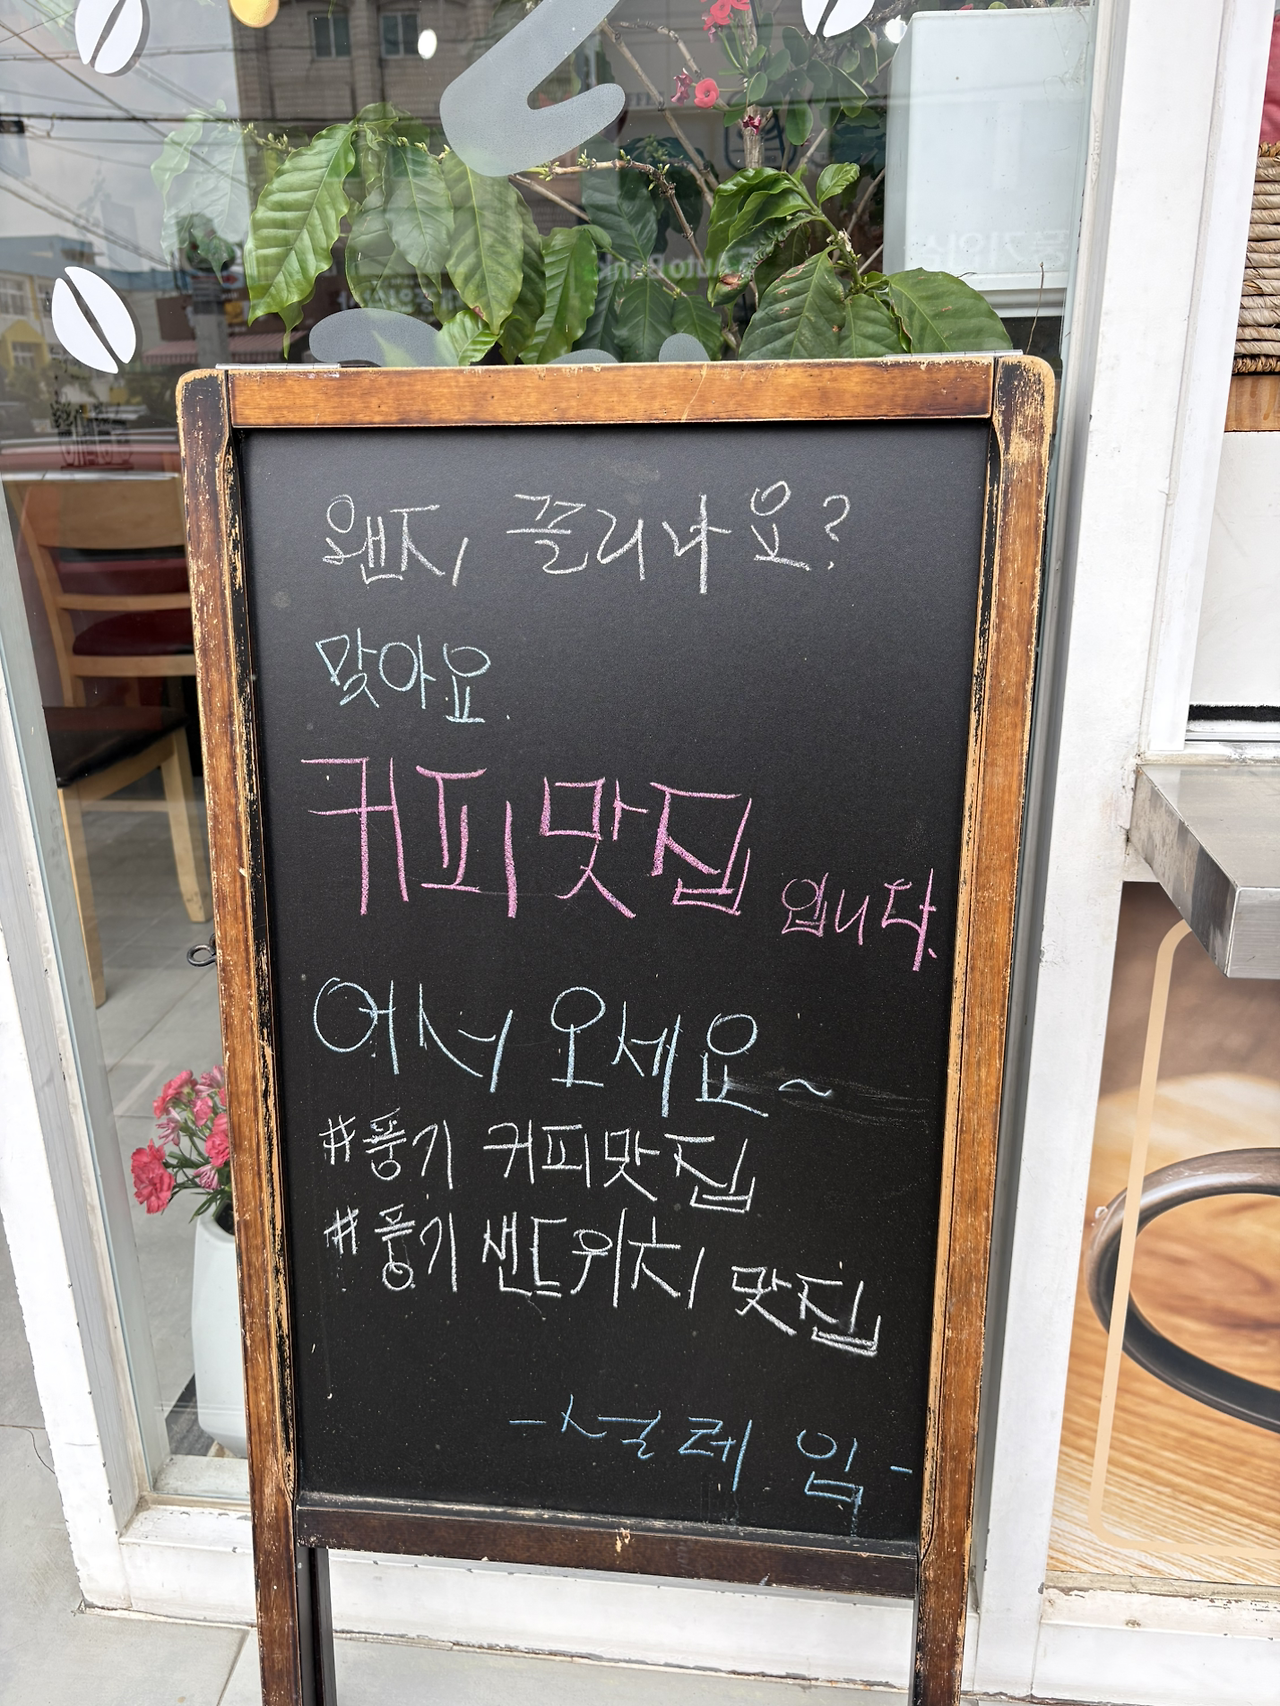 왠지 끌리나요?
맞아요.
커피맛집 입니다.
어서 오세요~
#풍기 커피맛집
#풍기 샌드위치 맛집
-설레임-